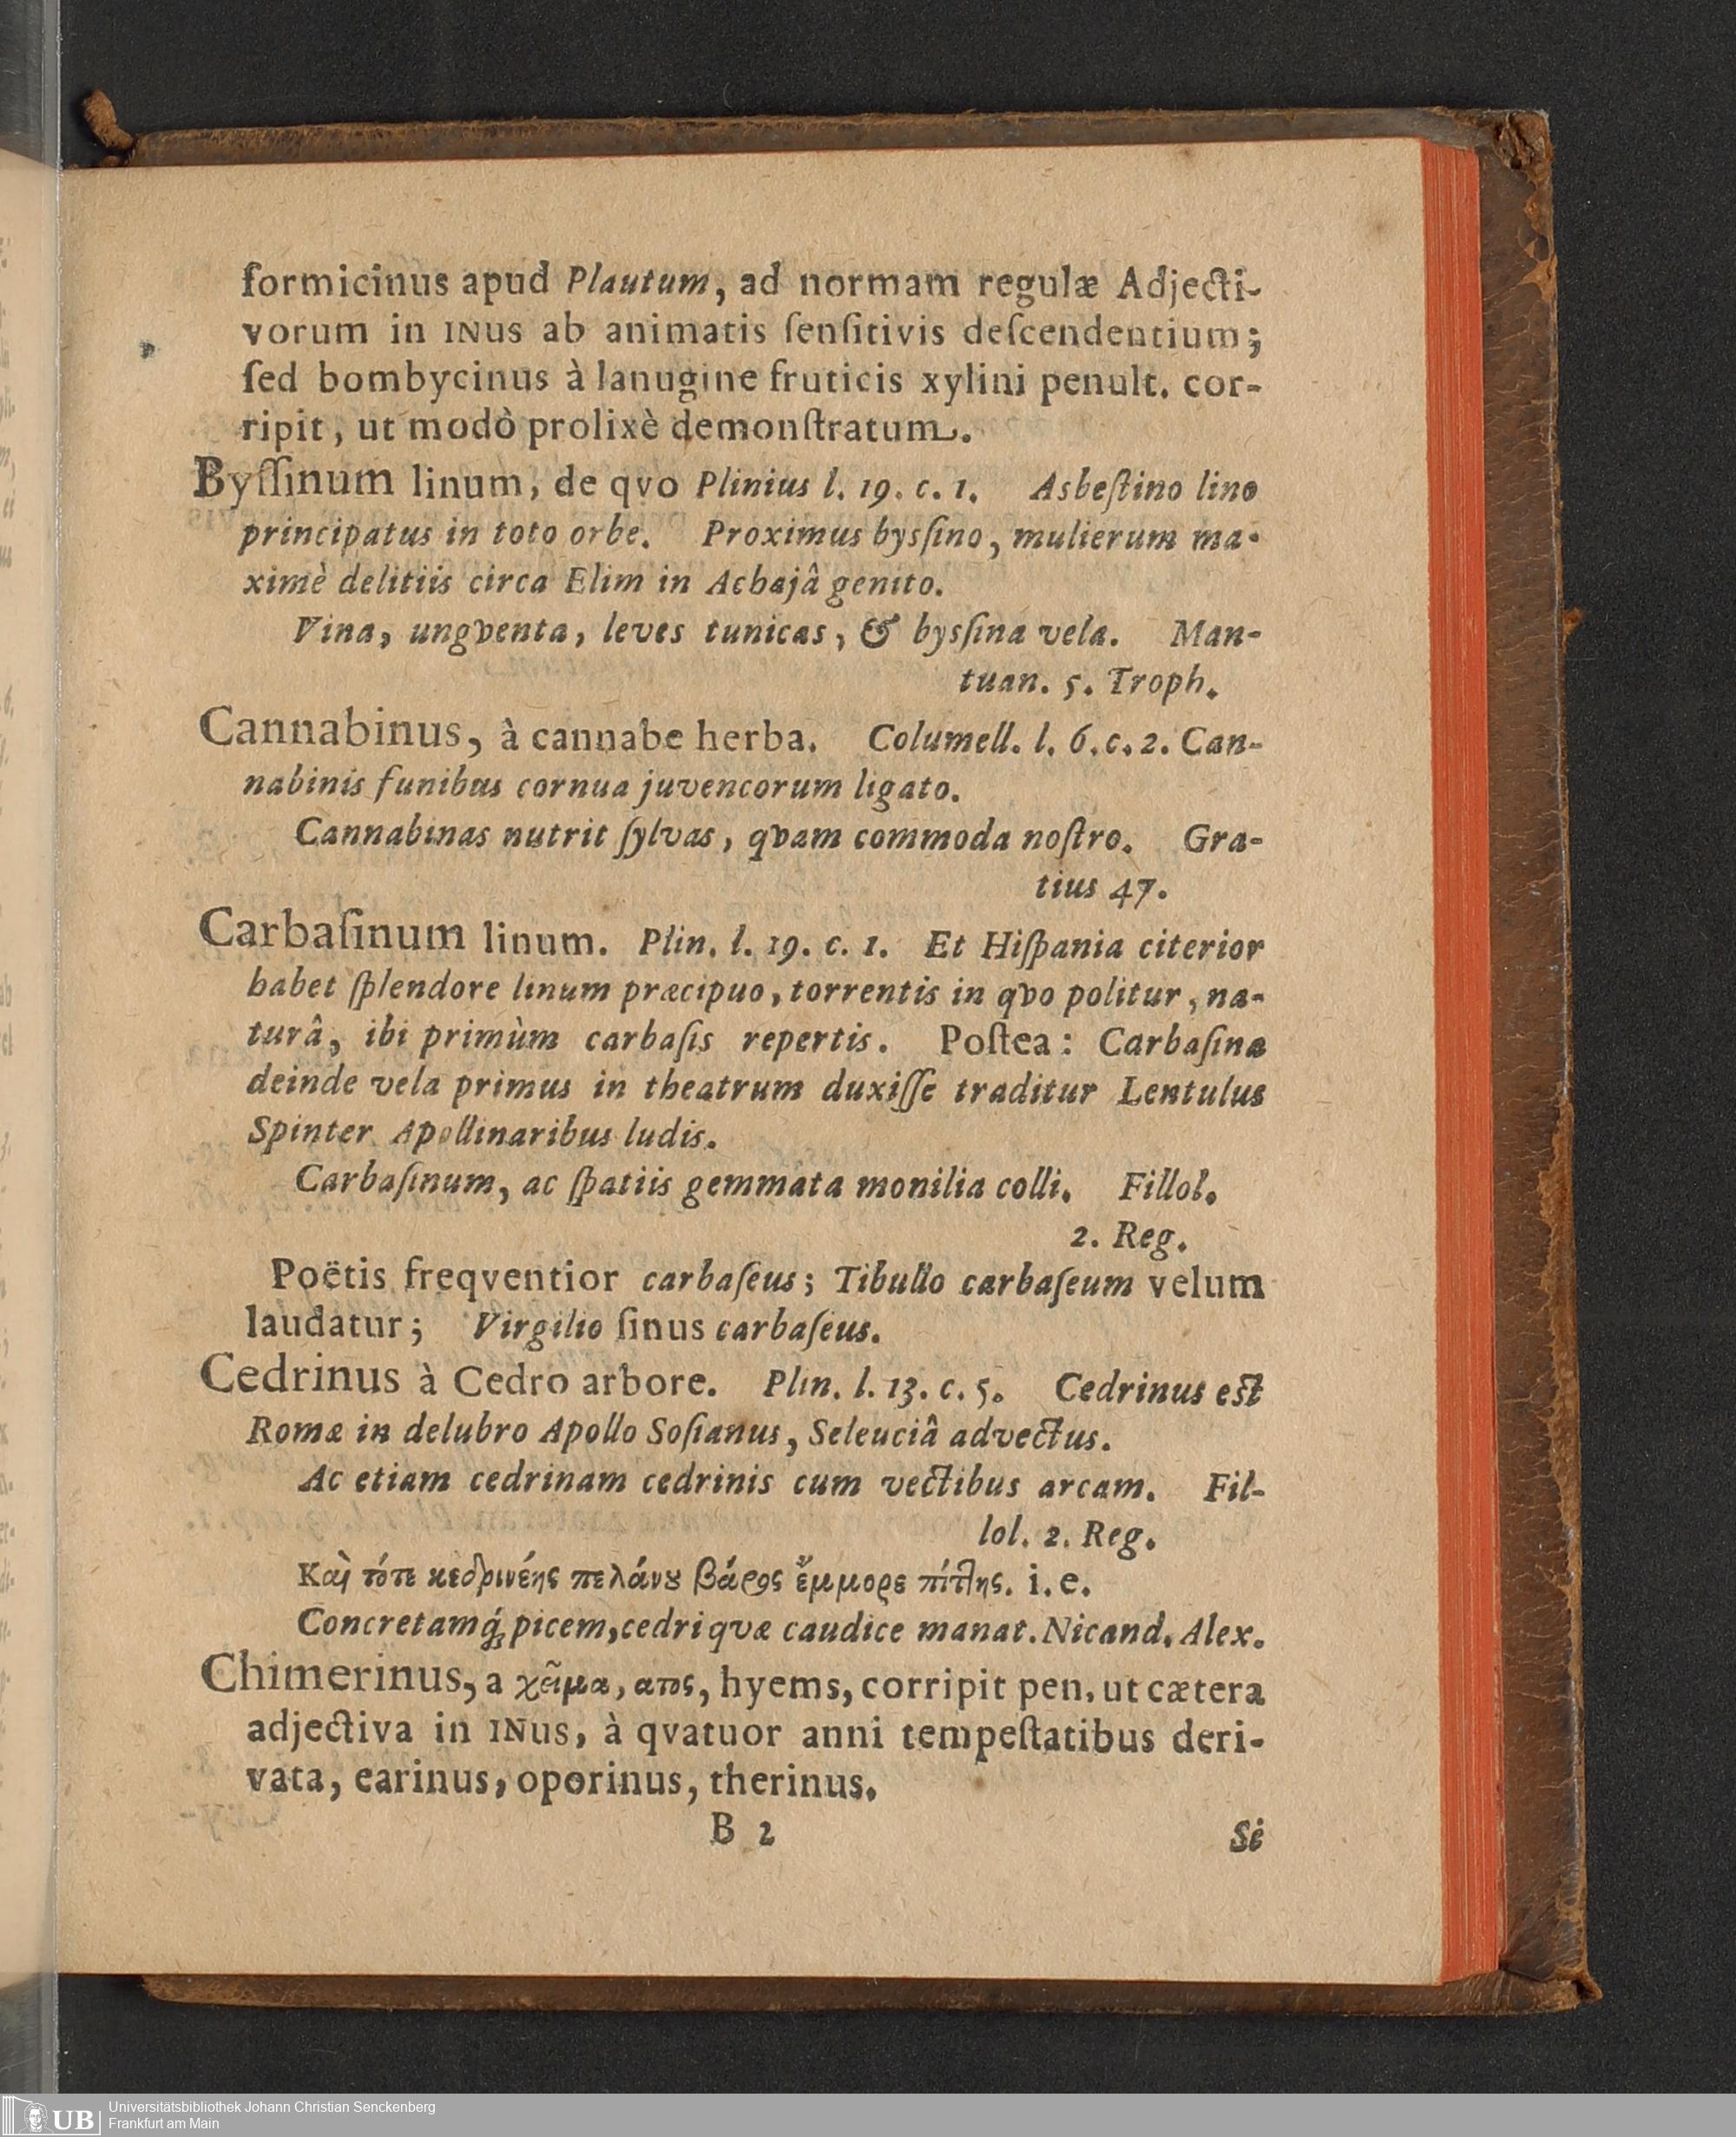 formicinus apud Plautum, ad normam regulæ Adjecti-
vorum in INus ab animatis ſenſitivis deſcendentium;
ſed bombycinus à lanugine fruticis xylini penult. cor-
ripit, ut modò prolixè demonſtratum.
Byſſinum linum, de qvo Plinius l. 19. c. 1. Asbeſtino lino
principatus in toto orbe. Proximus bysſino, mulierum ma-
ximè delitiis circa Elim in Achajâ genito.
Vina, ungventa, leves tunicas, & bysſina vela. Man-
tuan. 5. Troph.
Cannabinus, à cannabe herba. Columell. l. 6. c. 2. Can-
nabinis funibus cornua juvencorum ligato.
Cannabinas nutrit ſylvas, qvam commoda noſtro. Gra-
tius 47.
Carbaſinum linum. Plin. l. 19. c. 1. Et Hiſpania citerior
habet ſplendore linum præcipuo, torrentis in qvo politur, na-
turâ, ibi primùm carbaſis repertis. Poſtea: Carbaſina
deinde vela primus in theatrum duxiſſe traditur Lentulus
Spinter Apollinaribus ludis.
Carbaſinum, ac ſpatiis gemmata monilia colli. Fillol.
2. Reg.
Poëtis freqventior carbaſeus; Tibullo carbaſeum velum
laudatur; Virgilio ſinus carbaſeus.
Cedrinus à Cedro arbore. Plin. l. 13. c. 5. Cedrinus est
Romæ in delubro Apollo Soſianus, Seleuciâ advectus.
Ac etiam cedrinam cedrinis cum vectibus arcam. Fil-
lol. 2. Reg.
Καὶ τότε κεδρινέης πελάνȣ βάρος ἔμμορε πίτλης. i. e.
Concretamq́; picem, cedri qvæ caudice manat. Nicand. Alex.
Chimerinus, a χεῖμα, ατος, hyems, corripit pen. ut cætera
adjectiva in INus, à qvatuor anni tempeſtatibus deri-
vata, earinus, oporinus, therinus.
B 2 Si
Universitätsbibliothek Johann Christian Senckenberg
UB Frankfurt am Main